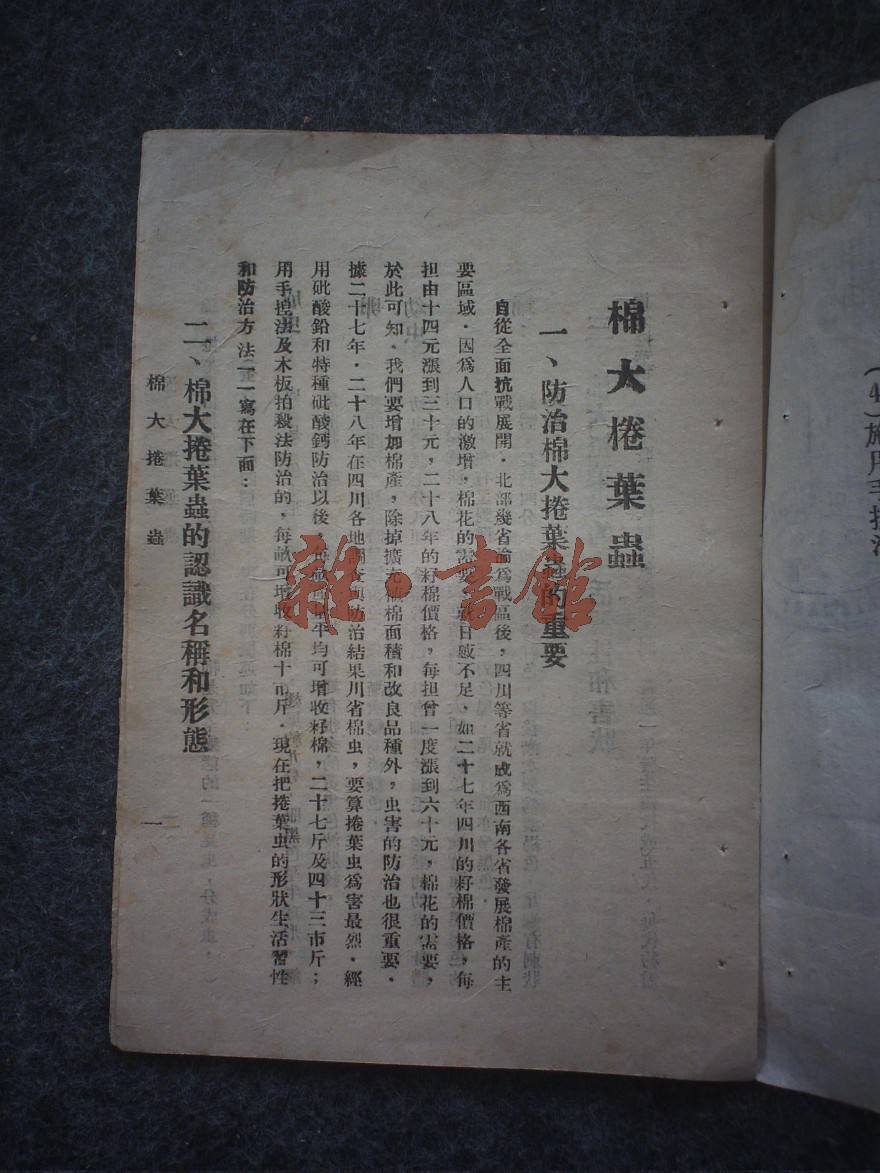 棉大捲葉蟲
一、防治棉大捲葉蟲的重要
自從全面抗戰展開．北部幾省淪爲戰區後，四川等省就成爲西南各省發展棉產的主
要區域．因爲人口的激增，棉花的需要，就日感不足，如二十七年四川的籽棉價格，每
担由十四元漲到三十元，二十八年的籽棉價格，每担曾一度漲到六十元，棉花的需要，
於此可知．我們要增加棉產，除掉擴充植棉面積和改良品種外，虫害的防治也很重要．
據二十七年．二十八年在四川各地調查與防治結果川省棉虫，要算捲葉虫爲害最烈．經
用砒酸鉛和特種砒酸鈣防治以後，每畝平均可增收籽棉，二十七斤及四十三市斤；
用手捏法及木板拍殺法防治的，每畝可增收籽棉十市斤．現在把捲葉虫的形狀生活習性
和防治方法一一寫在下面：
二、棉大捲葉蟲的認識名稱和形態
棉大捲葉蟲
一
雜·書館